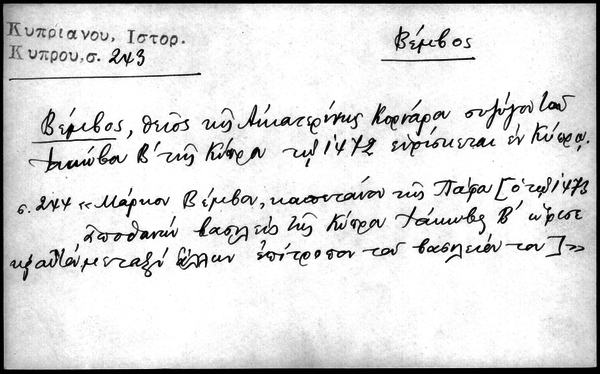 Κυπριανου, Ιστορ.
Κυπρου, σ. 243
Βέμβος
Βέμβος, θεῖος τῆς Αἰκατερίνης Κορνάρο συζύγου τοῦ
Ἰακώβου Β´ τῆς Κύπρου τῷ 1472 εὑρίσκεται ἐν Κύπρῳ.
σ. 244 «Μάρκον Βέμβον, καπετάνον τῆς Πάφου [ὁ τῷ 1473
ἀποθανὼν βασιλεὺς τῆς Κύπρου Ἰάκωβος Β´ ὥρισε
κ᾽ αὐτὸν μεταξὺ ἄλλων ἐπίτροπον τοῦ βασιλείου του]»